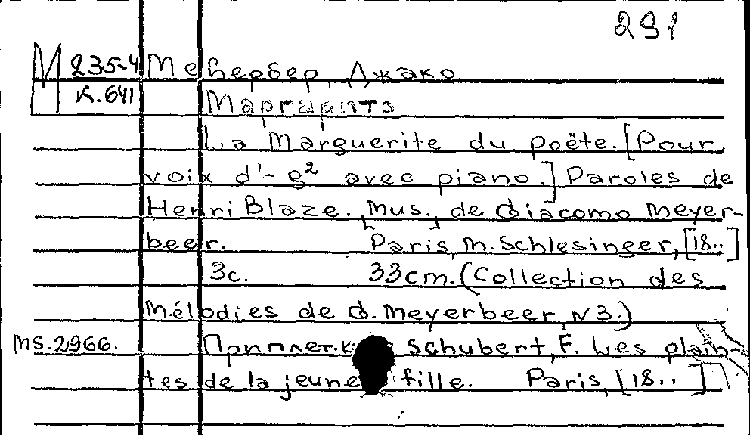 291
М 235-4 Мейербер, Джако
К.641 Маргарита
La Marguerite du poëte. [Pour
voix d'- g² avec piano.] Paroles de
Henri Blaze. [Mus.] de Giacomo Meyer-
beer. Paris, M. Schlesinger, [18..]
3с. 33cm. (Collection des
Mélodies de G. Meyerbeer, N3.)
MS.2966. Приплет. к Schubert, F. Les plain-
tes de la jeune fille. Paris, [18..]